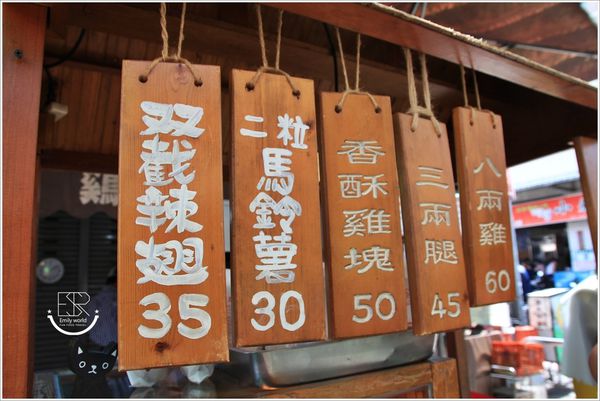 雙截辣翅
35
二粒
馬鈴薯
30
香酥雞塊
50
三兩腿
45
八兩雞
60
鷄
ESR
Emily world